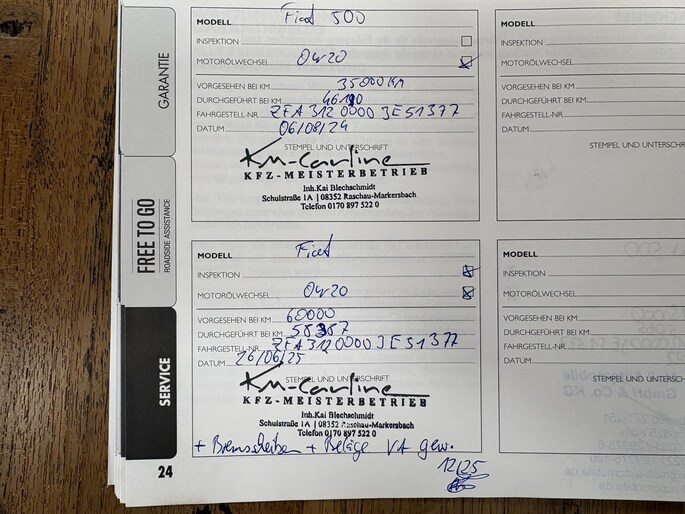 GARANTIE
FREE TO GO
ROADSIDE ASSISTANCE
SERVICE
MODELL Fiat 500
INSPEKTION
MOTORÖLWECHSEL 0W20
VORGESEHEN BEI KM 35000 KM
DURCHGEFÜHRT BEI KM 46190
FAHRGESTELL-NR. ZFA 312 0000 JE51377
DATUM 06/08/24
STEMPEL UND UNTERSCHRIFT
KM-Carline
KFZ-MEISTERBETRIEB
Inh.Kai Blechschmidt
Schulstraße 1A | 08352 Raschau-Markersbach
Telefon 0170 897 522 0
MODELL Fiat
INSPEKTION
MOTORÖLWECHSEL 0W20
VORGESEHEN BEI KM 60000
DURCHGEFÜHRT BEI KM 58387
FAHRGESTELL-NR. ZFA 312 0000 JE51377
DATUM 26/06/25
STEMPEL UND UNTERSCHRIFT
KM-Carline
KFZ-MEISTERBETRIEB
Inh.Kai Blechschmidt
Schulstraße 1A | 08352 Raschau-Markersbach
Telefon 0170 897 522 0
+ Bremsscheiben + Beläge VA gew.
12/25
24
MODELL
INSPEKTION
MOTORÖLWECHSEL
VORGESEHEN BEI KM
DURCHGEFÜHRT BEI KM
FAHRGESTELL-NR.
DATUM
STEMPEL UND UNTERSCHR
MODELL
INSPEKTION
MOTORÖLWECHSEL
VORGESEHEN BEI KM
DURCHGEFÜHRT BEI KM
FAHRGESTELL-NR.
DATUM
STEMPEL UND UNTERSCH